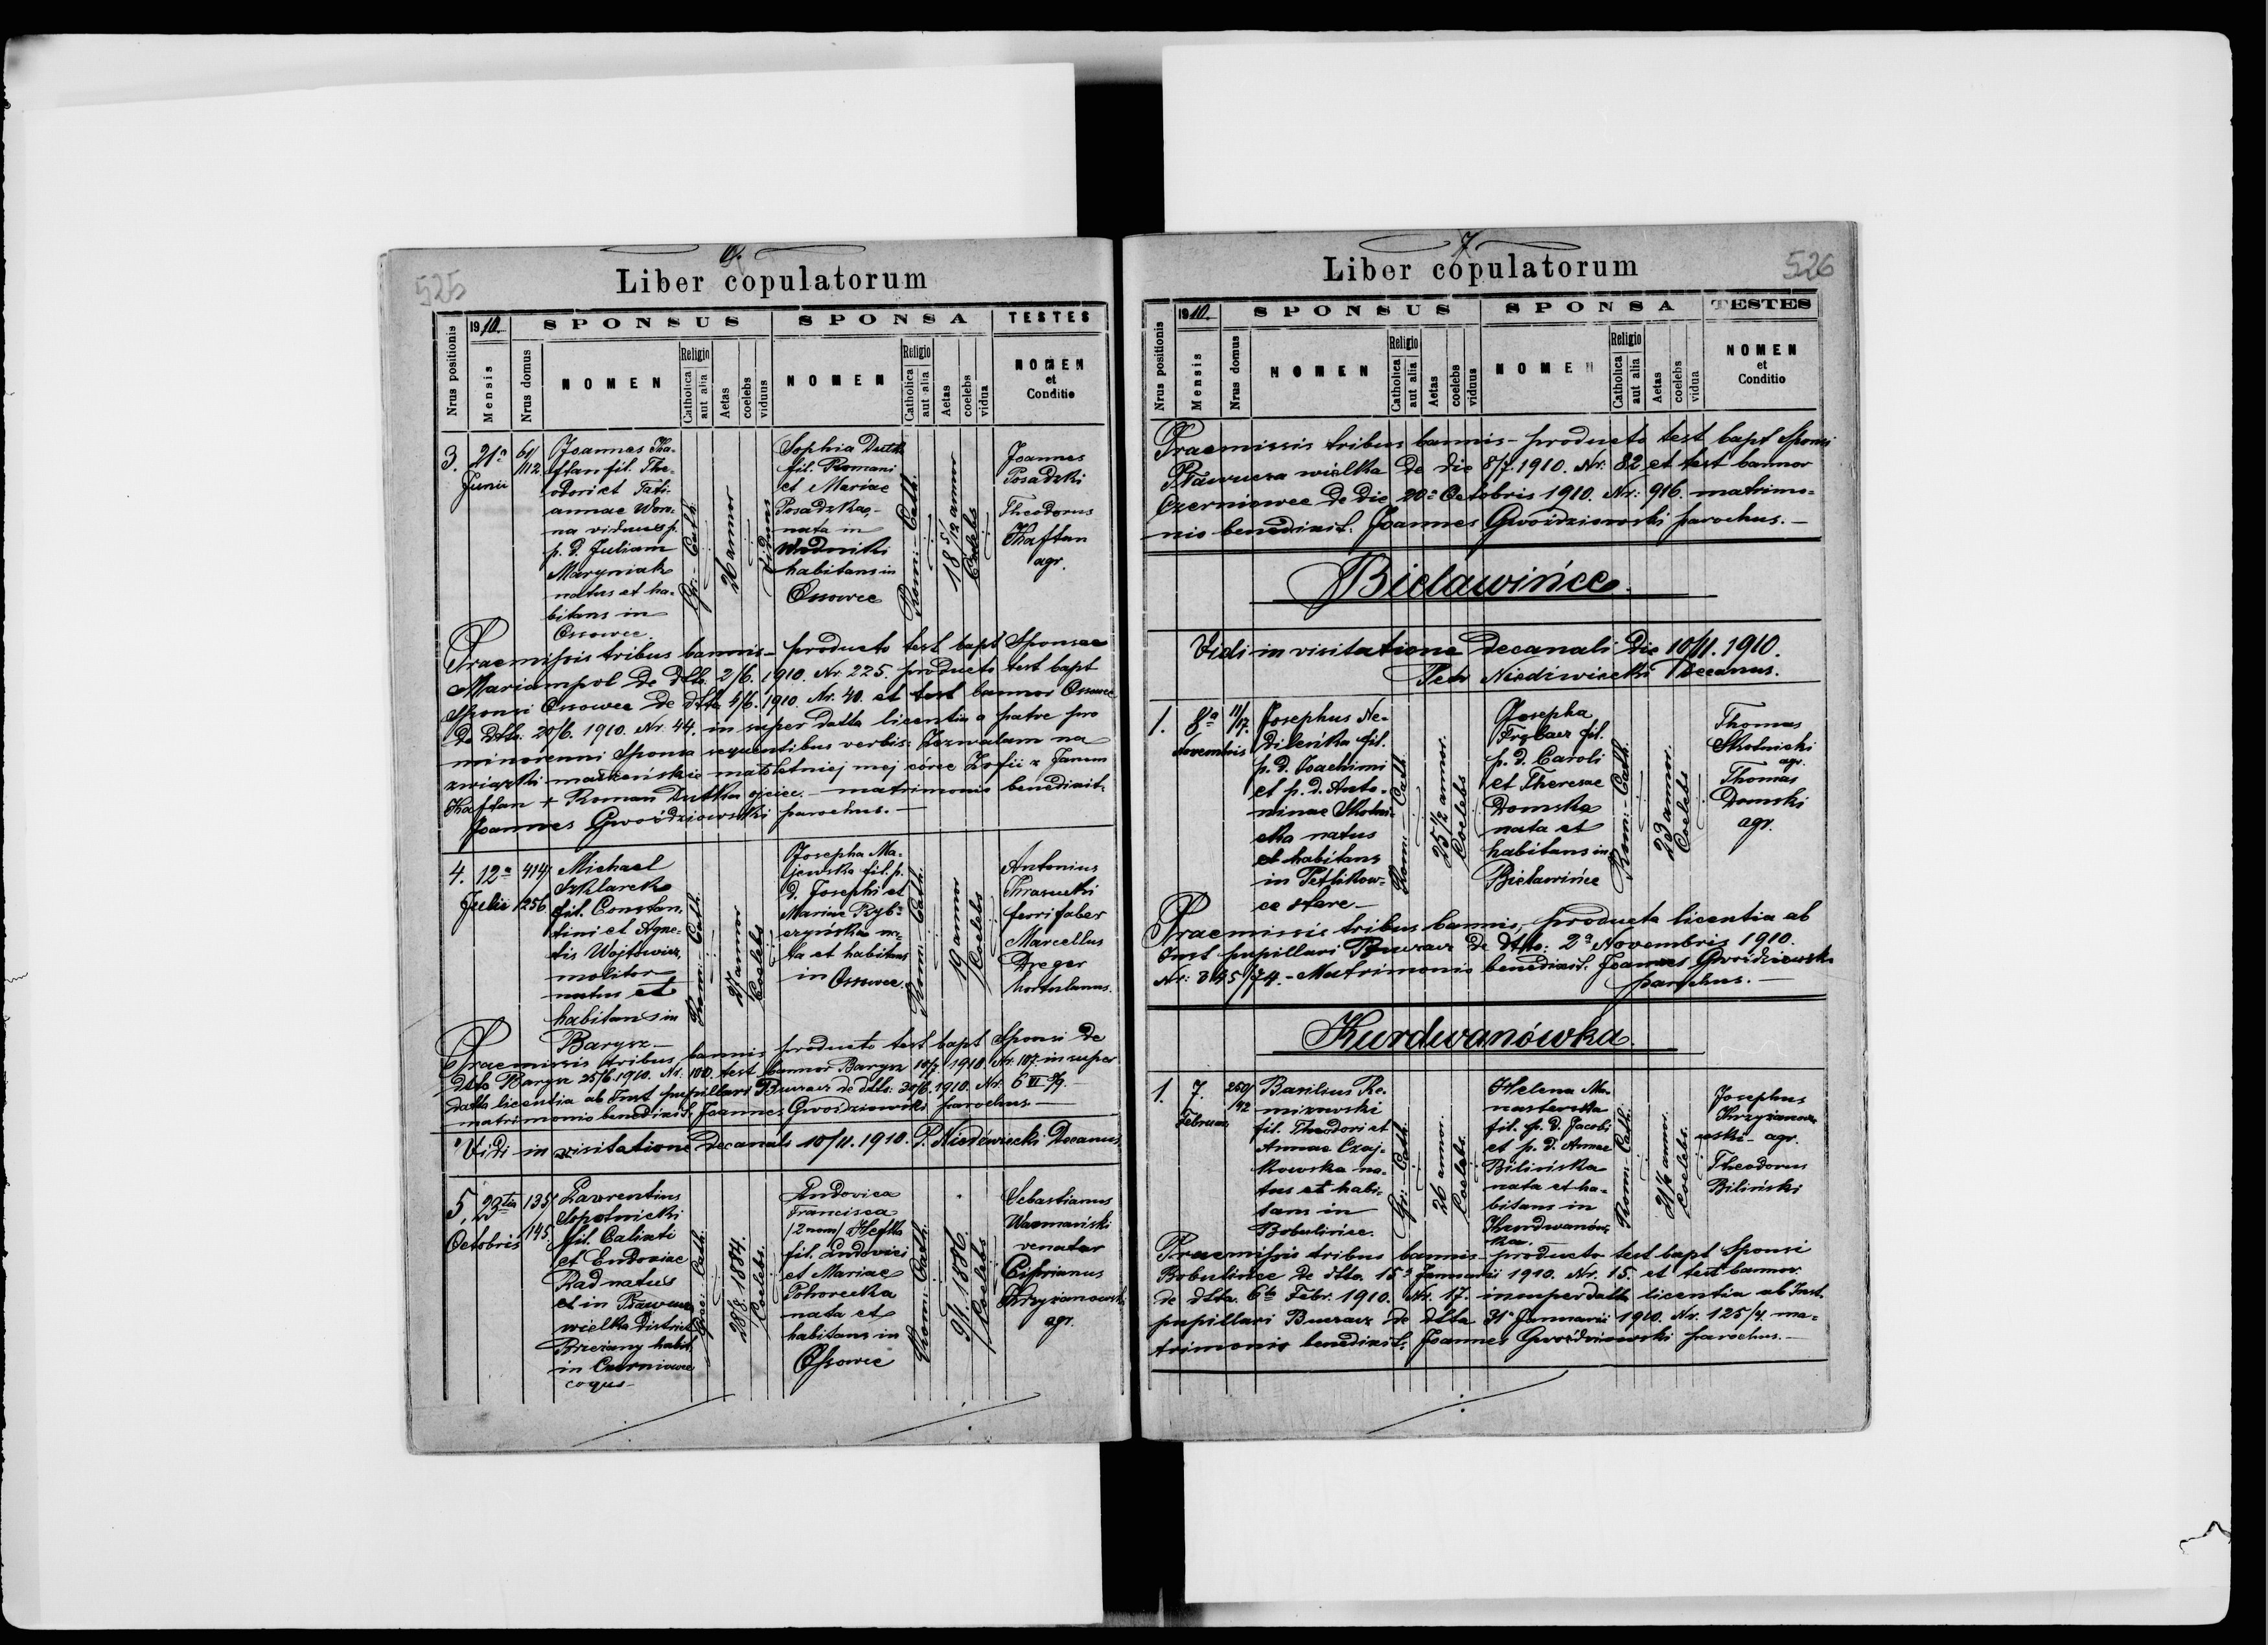 525
6.
Liber copulatorum
Nrus positionis
1910.
Mensis
Nrus domus
SPONSUS
NOMEN
Religio
Catholica
aut alia
Aetas
coelebs
viduus
SPONSA
NOMEN
Religio
Catholica
aut alia
Aetas
coelebs
vidua
TESTES
NOMEN
et
Conditio
3.
21a
Junii
61/
112
Joannes Kha-
ftan fil. The-
odori et Tati-
annae Woro-
na viduus p.
p. d. Juliam
Maryniak
natus et ha-
bitans in
Ossowce.
Gr. Cath.
26 annor
Viduus
Sophia Dutka
fil. Romani
et Mariae
Posadzka,
nata in
Wodniki
habitans in
Ossowce
Rom. Cath.
18 5/12 annor
Coelebs
Joannes
Posadzki
Theodorus
Khaftan
agr.
Praemissis tribus bannis – producto test bapt Sponsae
Mariampol de dtto. 2/6. 1910. Nr. 225. producto test bapt
Sponsi Ossowce de dtto 4/6. 1910. Nr. 40. et test bannor Ossowce
de dtto. 20/6. 1910. Nr. 44. in super datta licentia a patre pro
minorenni Sponsa sequentibus verbis: Zezwalam na
związki małżeńskie małoletniej mej córce Zofii z Janem
Khaftan + Roman Dutka ojciec. – matrimonio benedixit.
Joannes Gwoździowski parochus. –
4.
12a
Julii
414/
1256
Michael
Szklarek
fil. Constan-
tini et Agne-
tis Wojtowicz,
molitor
natus et
habitans in
Barysz –
Rom. Cath.
27 annor
Coelebs
Josepha Ma-
jewska fil. p.
d. Josephi et
Mariae Ryb-
czyńska na-
ta et habitans
in Ossowce.
Rom. Cath.
19 annor
Coelebs
Antonius
Krasucki
ferri faber
Marcellus
Dreger
hortulanus.
Praemissis tribus bannis producto test bapt Sponsi de
dtto Barysz 25/6. 1910. Nr. 100. test bannor Barysz 10/7. 1910. Nr. 107. in super
datta licentia ab Inst pupillari Buczacz de dtto: 30/6. 1910. Nr. 6
matrimonio benedixit. Joannes Gwoździowski parochus. –
Vidi in visitatione Decanali 10/11. 1910. P. Niedźwiecki Decanus
5.
23tia
Octobris
135/
145.
Lavrentius
Sopotnicki
fil. Calixti
et Eudoxiae
Rad natus
et in Pławucza
wielka district
Brzeżany habit.
in Czerniowce
coqus –
Graec. Cath.
28/8. 1884.
Coelebs.
Ludovica
Francisca
/2 nom/ Hefka
fil. Ludovici
et Mariae
Pohorecka
nata et
habitans in
Ossowce
Rom. Cath.
9/1. 1886.
Coelebs
Sebastianus
venator
Ciprianus
Krzyżanowski
agr.
7
526
Liber copulatorum
Nrus positionis
1910.
Mensis
Nrus domus
SPONSUS
NOMEN
Religio
Catholica
aut alia
Aetas
coelebs
viduus
SPONSA
NOMEN
Religio
Catholica
aut alia
Aetas
coelebs
vidua
TESTES
NOMEN
et
Conditio
Praemissis tribus bannis – producto test bapt Sponsi
Pławucza wielka de die 8/7. 1910. Nr. 82 et test bannor
Czerniowce de die 20a Octobris 1910. Nr. 916. matrimo-
nio benedixit. Joannes Gwoździowski parochus. –
Bielawińce.
Vidi in visitatione Decanali die 10/11. 1910.
Petr Niedźwiecki Decanus.
1.
8a
Novembris
11/
17.
Josephus Ne-
dileńka fil.
p. d. Joachimi
et p. d. Anto-
ninae Skolni-
cka natus
et habitans
in Petlikow-
ce stare –
Rom. Cath.
25 1/2 annor.
Coelebs
Josepha
Trębacz fil.
p. d. Caroli
et Theresae
Domska
nata et
habitans in
Bielawińce
Rom. Cath.
23 annor.
Coelebs
Thomas
Skolnicki
agr.
Thomas
Domski
agr.
Praemissis tribus bannis, producta licentia ab
Inst pupillari Buczacz de dtto: 2a Novembris 1910.
Nr: 345/74. – Matrimonio benedixit. Joannes Gwoździowski
parochus. –
Kurdwanówka
1.
7.
Februar.
250/
142
Basilius Re-
mizowski
fil. Theodori et
Annae Czaj-
kowska na-
tus et habi-
tans in
Bobulińce.
Gr. Cath.
26 annor.
Coelebs.
Helena Ma-
nasterska
fil. p. d. Jacobi
et p. d. Annae
Bilińska
nata et ha-
bitans in
Kurdwanów-
ka.
Rom. Cath.
21 1/2 annor.
Coelebs.
Josephus
Krzyżanow-
wski – agr.
Theodorus
Biliński
Praemissis tribus bannis – producto test bapt Sponsi
Bobulińce de dtto. 15a Januarii 1910. Nr. 15. et test bannor.
de dtto. 6ta Febr. 1910. Nr. 17. insuper datta licentia ab Inst.
pupillari Buczacz de dtto 31a Januarii 1910. Nr. 125/4. ma-
trimonio benedixit. Joannes Gwoździowski parochus. –